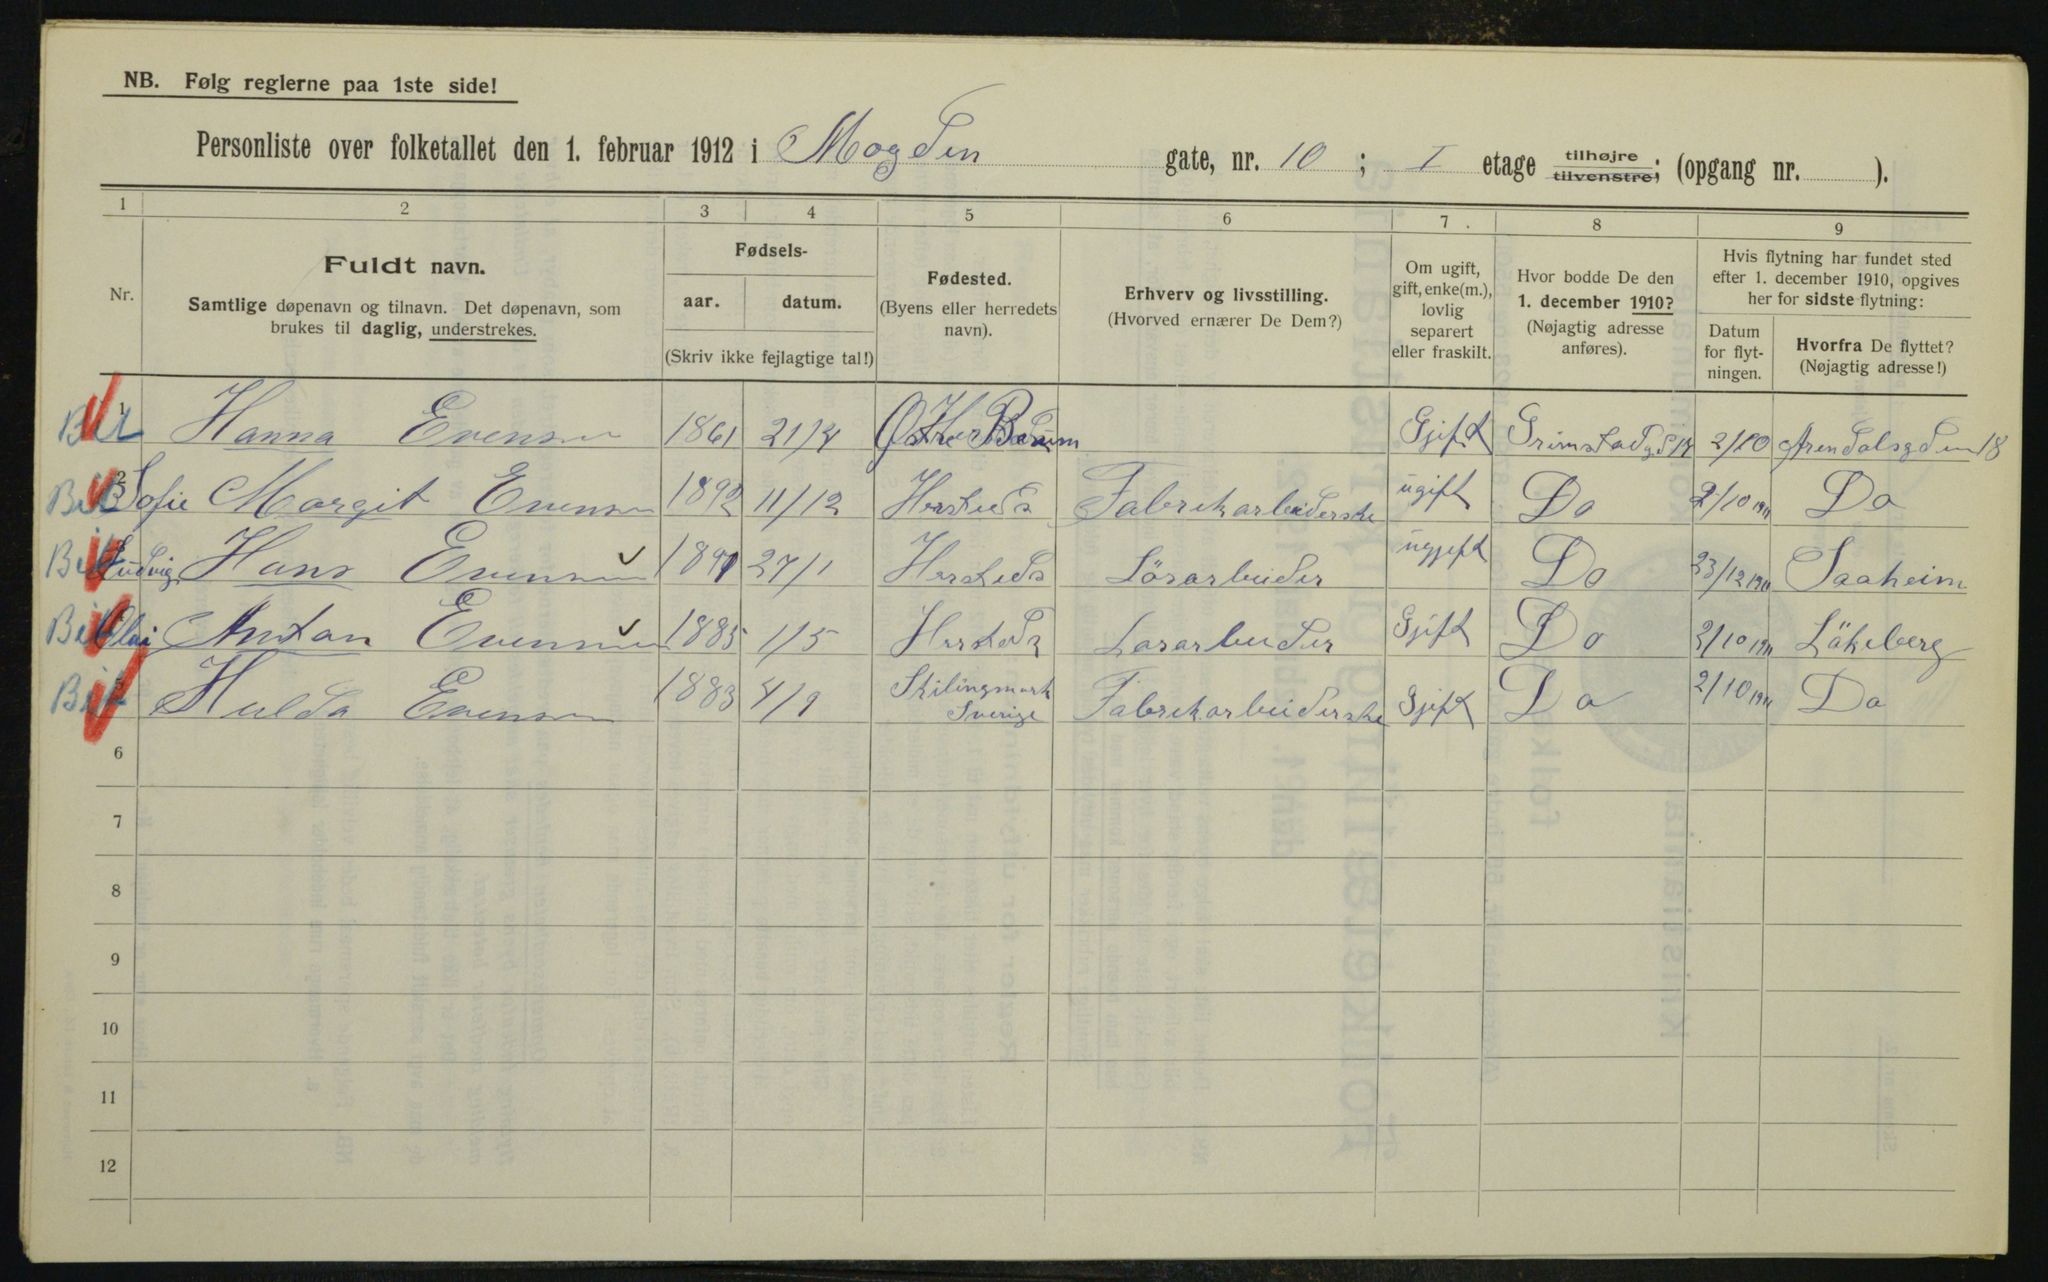 NB. Følg reglerne paa 1ste side!
Personliste over folketallet den 1. februar 1912 i Mogden gate, nr. 10 ; I etage tilhøjre tilvenstre; (opgang nr. ).
1 2 3 4 5 6 7 8 9
Nr.
Fuldt navn.
Samtlige døpenavn og tilnavn. Det døpenavn, som
brukes til daglig, understrekes.
Fødsels-
aar. datum.
(Skriv ikke fejlagtige tal!)
Fødested.
(Byens eller herredets
navn).
Erhverv og livsstilling.
(Hvorved ernærer De Dem?)
Om ugift,
gift, enke(m.),
lovlig
separert
eller fraskilt.
Hvor bodde De den
1. december 1910?
(Nøjagtig adresse
anføres).
Hvis flytning har fundet sted
efter 1. december 1910, opgives
her for sidste flytning:
Datum
for flyt-
ningen.
Hvorfra De flyttet?
(Nøjagtig adresse!)
1 Hanna Evensen 1861 21/4 Gjift Grimstadgd 14 2/10 Arendalsgden 18
2 Sofie Margit Evensen 1892 11/12 Hersteds Fabrekarbeiderske ugift Do 2/10 1911 Do
Ludvig Hans Evensen 1891 27/1 Hersteds Lösarbeider ugjift Do 23/12 1911 Saaheim
Olai Anton Evensen 1885 1/5 Hersteds Løsarbeider Gjift Do 2/10 1911 Lökeberg
5 Hulda Evensen 1883 4/9 Skilingmark Sverige Fabrekarbeiderske Gjift Do 2/10 1911 Do
6
7
8
9
10
11
12